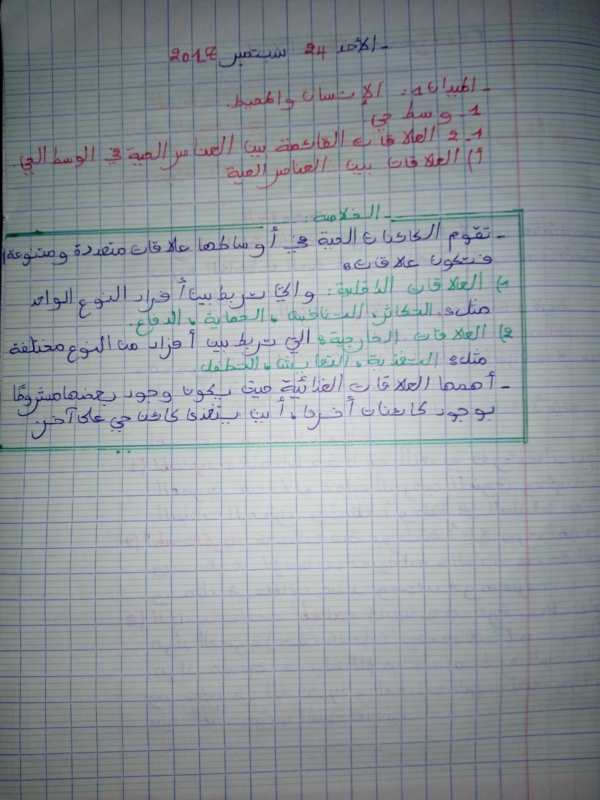 - الأحد 24 سبتمبر 2017
- الميدان 1: الإنسان والمحيط.
1- وسط حي
1-2 العلاقات القائمة بين العناصر الحية في الوسط الحي.
أ) العلاقات بين العناصر الحية
- الخلاصة:
- تقوم الكائنات الحية في أوساطها علاقات متعددة ومتنوعة
فتكون علاقات:
1) العلاقات الداخلية: والتي تربط بين أفراد النوع الواحد
مثل: التكاثر، التنافسية، الحماية، الدفاع.
2) العلاقات الخارجية: التي تربط بين أفراد من النوع مختلفة
مثل: التغذية، التعايش، التطفل
- أهمها العلاقات الغذائية حيث يكون وجود بعضها مشروطا
بوجود كائنات أخرى، أين يتغذى كائن حي على آخر